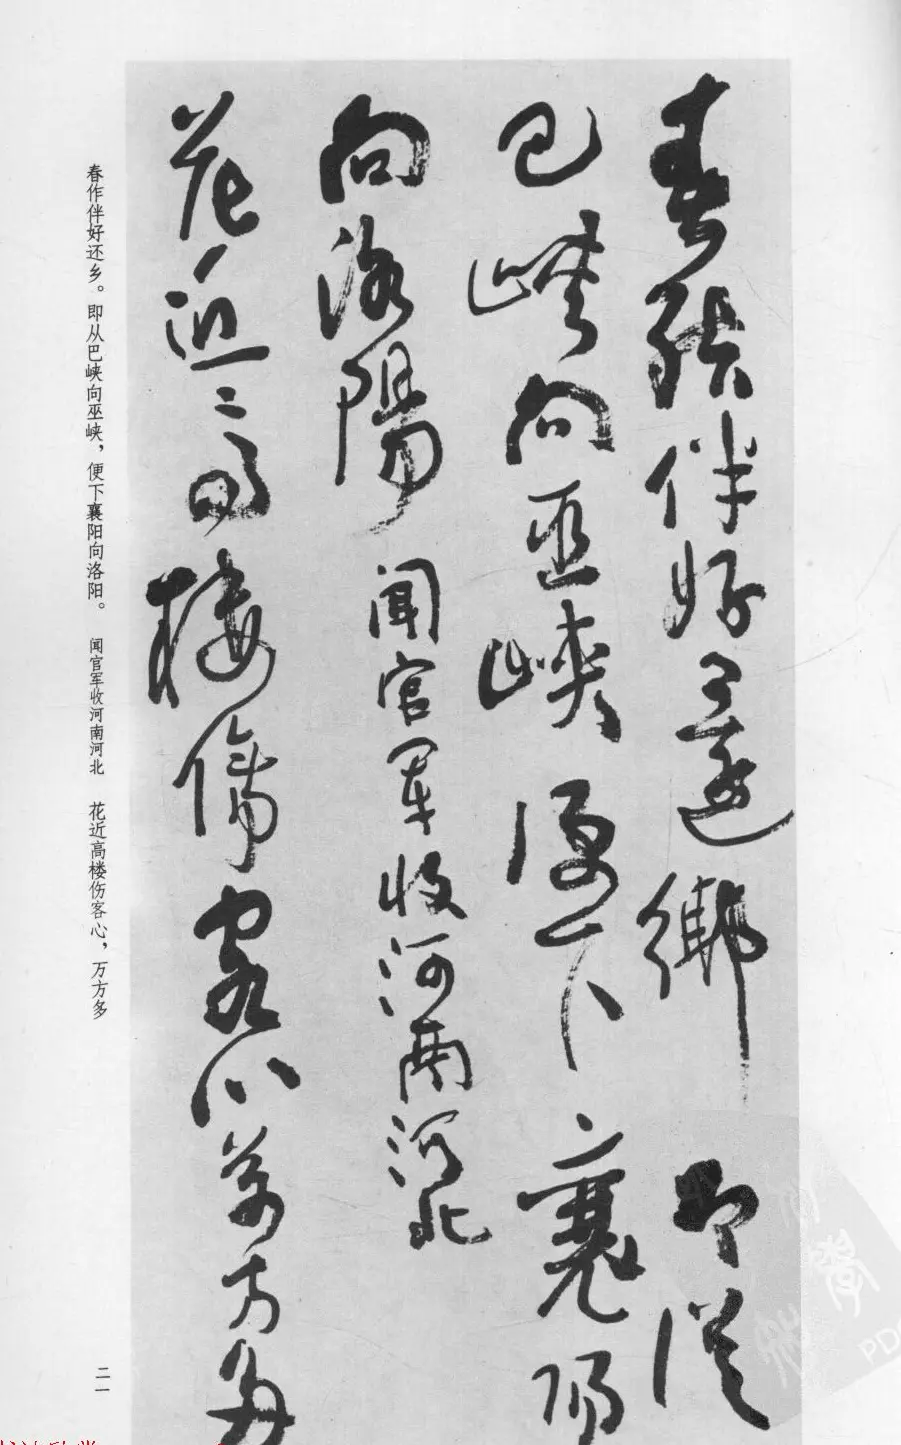 春作伴好還鄉即從
巴峽向巫峽便下襄陽
向洛陽 聞官軍收河南河北
花近高樓傷客心萬方多
春作伴好还乡。即从巴峡向巫峡，便下襄阳向洛阳。 闻官军收河南河北 花近高楼伤客心，万方多
二一